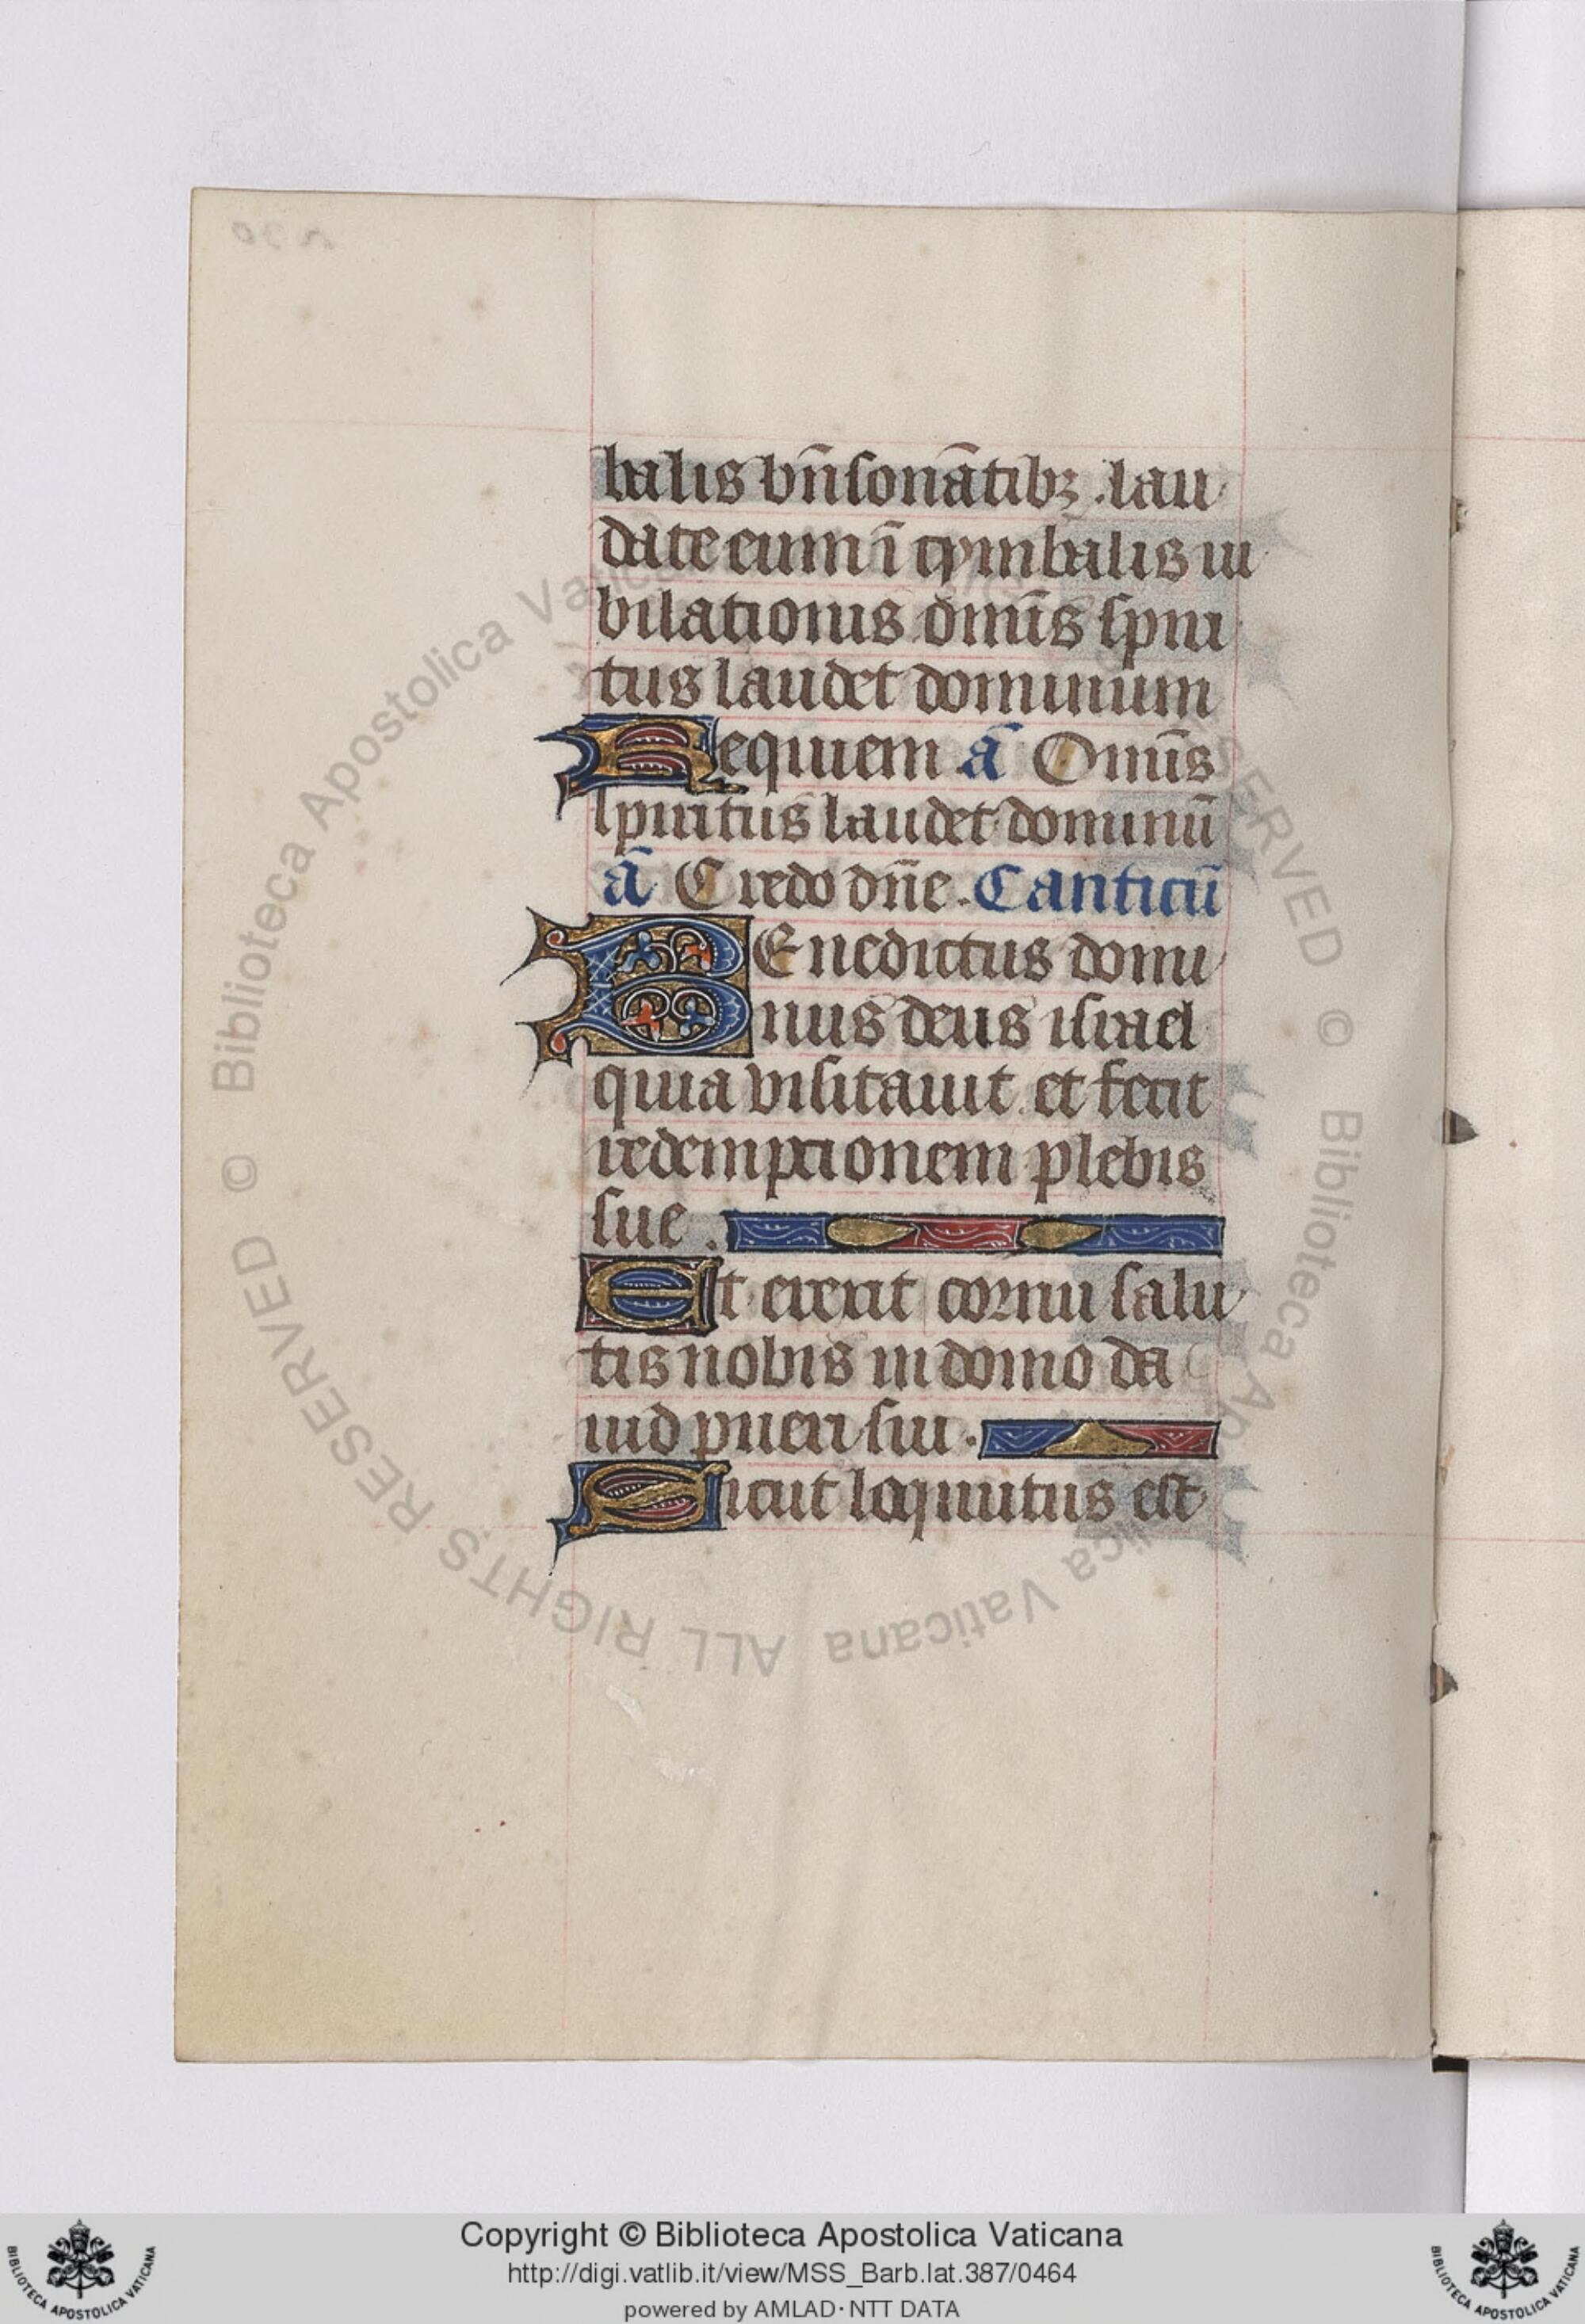 balis bn̄sonātibꝫ. lau
date eum ī cymbalis iu
bilationis omīs spiri
tus laudet dominum
Requiem ā Omīs
spiritus laudet dominū
ā Credo dn̄e. Canticū
BEnedictus domi
nus deus israel
quia visitavit et fecit
redemptionem plebis
sue.
Et erexit cornu salu
tis nobis in domo da
uid pueri sui.
Sicut loqutus est
© Biblioteca Apostolica Vaticana ALL RIGHTS RESERVED
© Biblioteca Apostolica Vaticana ALL RIGHTS RESERVED
Copyright © Biblioteca Apostolica Vaticana
http://digi.vatlib.it/view/MSS_Barb.lat.387/0464
powered by AMLAD·NTT DATA
BIBLIOTECA APOSTOLICA VATICANA
BIBLIOTECA APOSTOLICA VATICANA